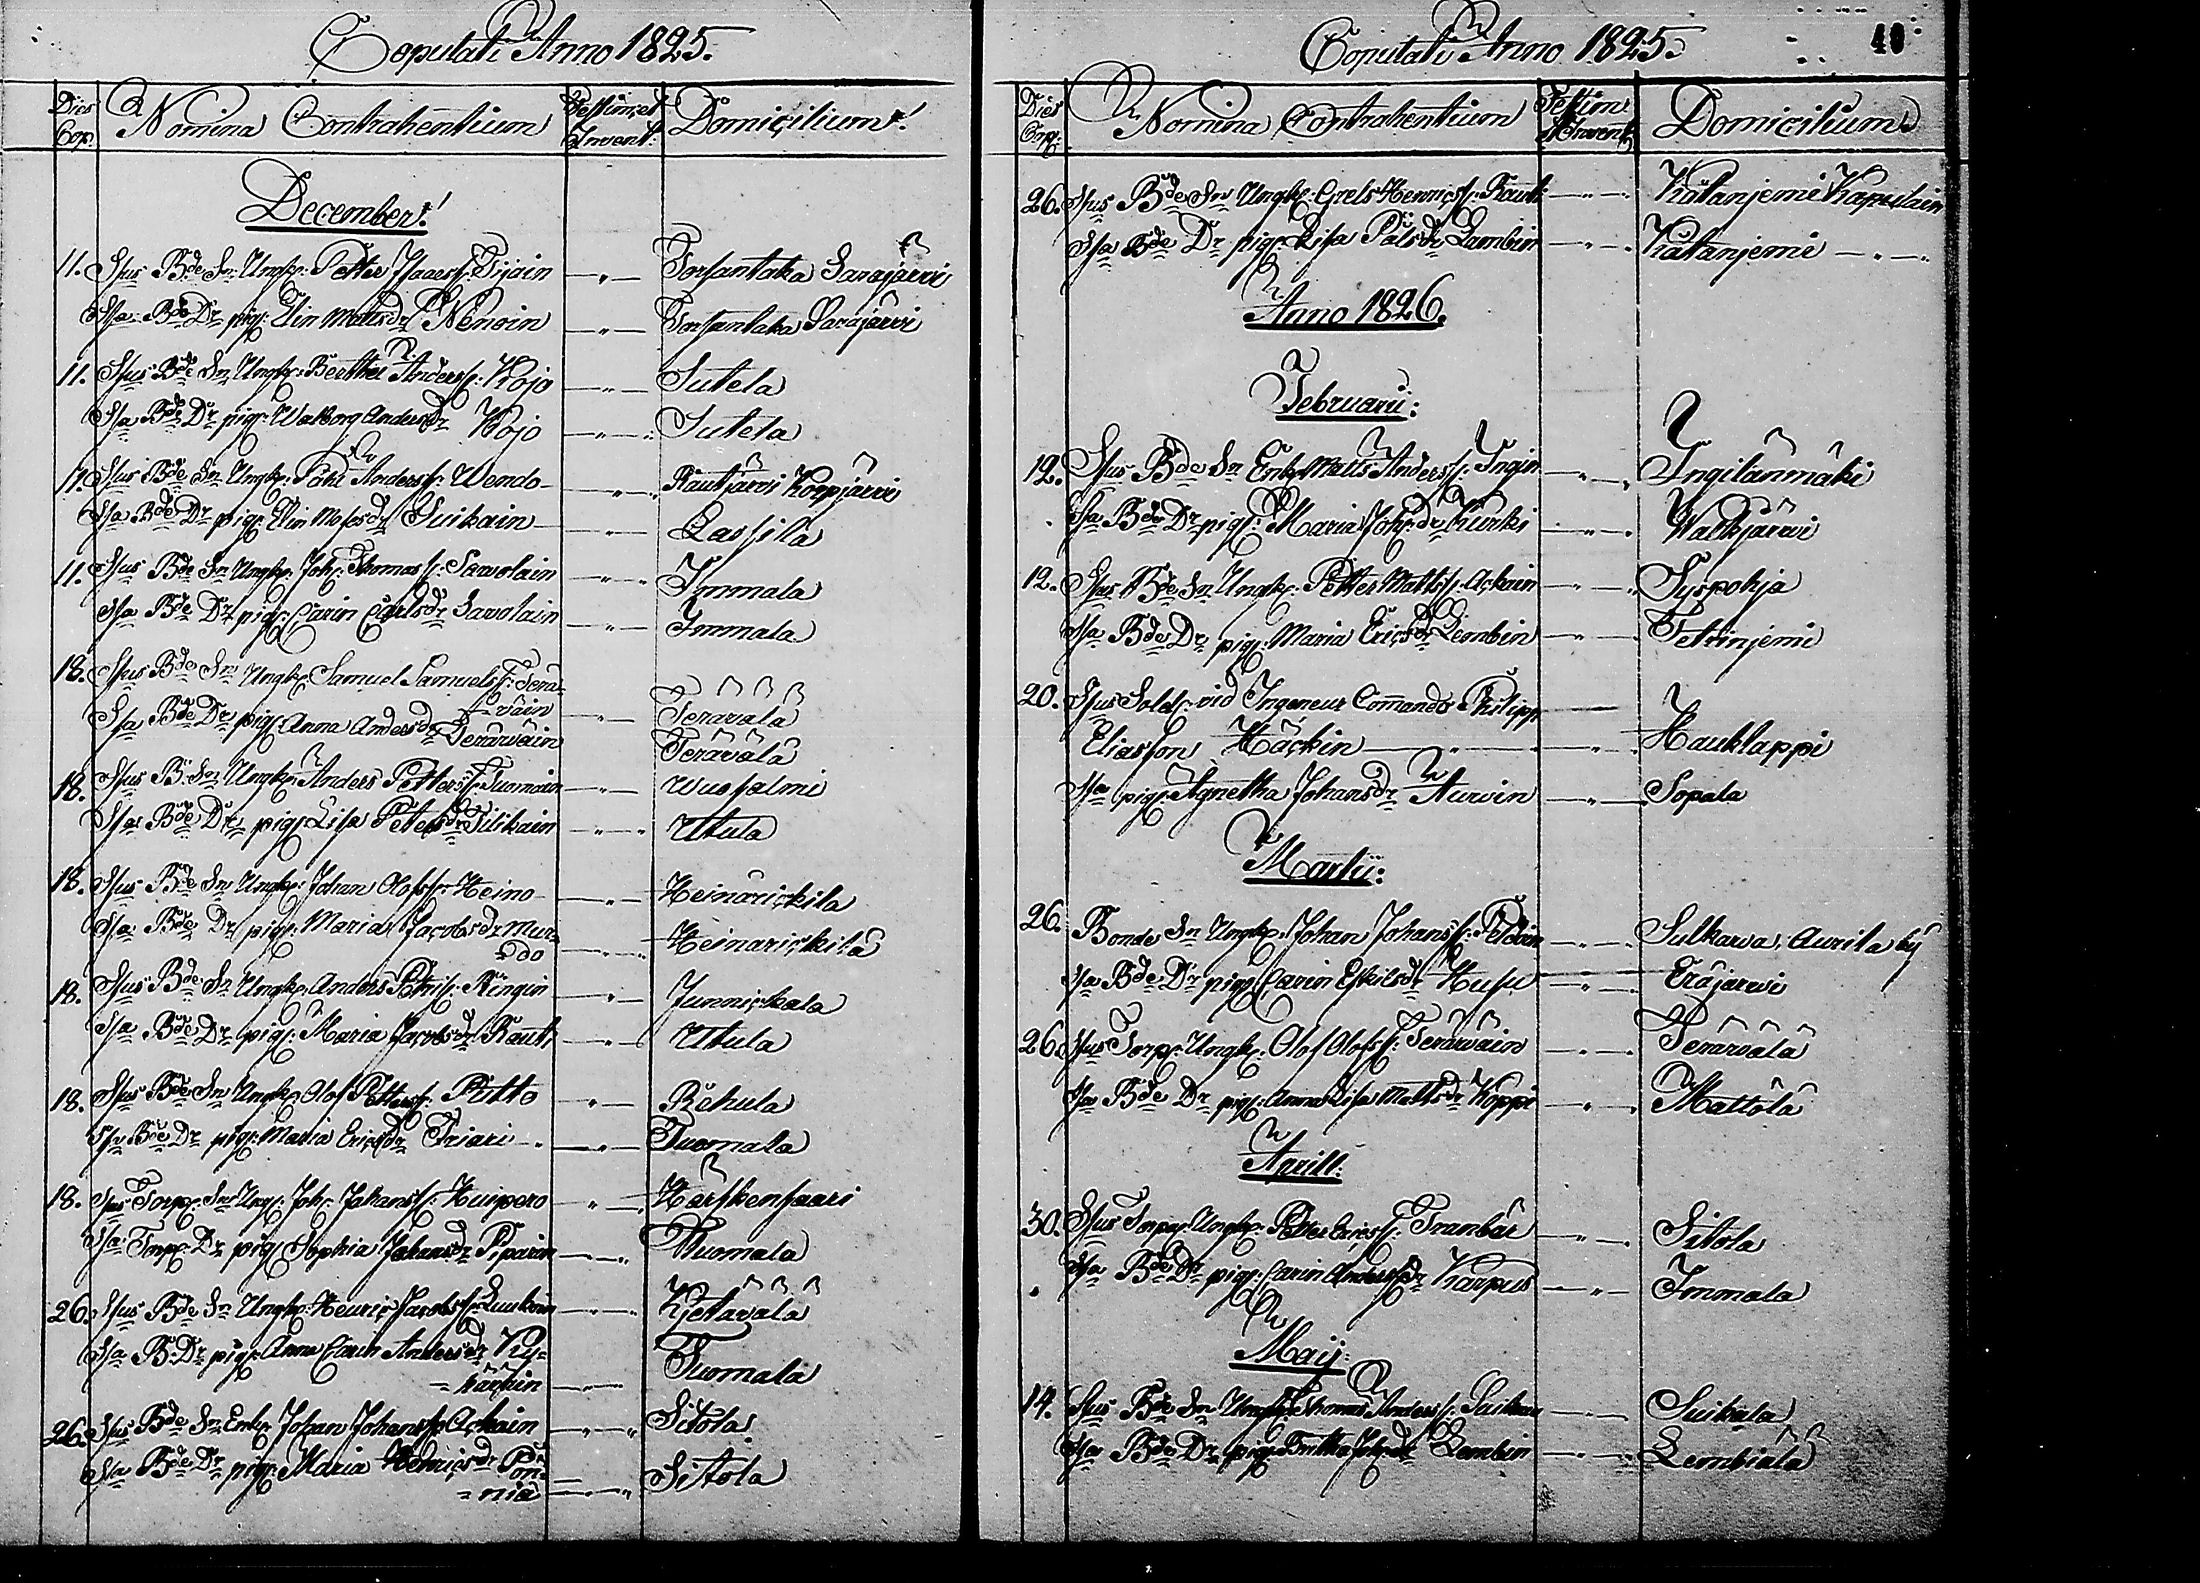 Copulati Anno 1825.
Dies Cop. Nomina Contrahentium Domicilium.
December!
11. Spus Bde Sn Ungk. Petter Isaacss. Pijain — " — Torsantaka Sarajärvi
Spa Bde Dr pig. Elin Mattsdr Nenoin — " — Torsantaka Sarajärvi
11. Spus Bde Sn Ungk. Berthel Anderss. Kojo — " — Sutela
Spa Bde Dr pig. Walborg Andersdr Kojo — " — Sutela
Spus Bde Sn Ungk. Påhl Anderss. Wendo — " — Rautjärvi Korpjärvi
Spa Bde Dr pig. Elin Mosesdr Suikain — " — Lassila
11. Spus Bde Sn Ungk. Joh. Thomass. Sawolain — " — Immala
Spa Bde Dr pig. Carin Carlsdr Savolain — " — Immala
18. Spus Bde Sn Ungk. Samuel Samuelss. Terä-
räin — " — Teräväla
Spa Bde Dr pig. Anna Andersdr Terärwäin Terävälä
18. Spus B. Sn Ungk. Anders Petterss. Tuomain — " — Wuosalmi
Spa Bde Dr pig. Lisa Petersdr Tilikain — " — Utula
18. Spus Bde Sn Ungk. Johan Olofss. Heino — " — Heinärickila
Spa Bde Dr pig. Maria Jacobsdr Mur-
do — " — Heinarickilä
18. Spus Bde Sn Ungk. Anders Ringin — " — Junnickala
Spa Bde Dr pig. Maria Jacobsdr Rauti — " — Utula
18. Spus Bde Sn Ungk. Olof Petterss. Putto — " — Rehula
Spa Bde Dr pig. Maria Ericsdr Friari — " — Tuomala
18. Spus Torp. Sn Ungk. Joh. Johanss. Huipero — " — Härskensaari
Spa Torp. Dr pig. Sophia Johansdr Piparin — " — Tuomala
26. Spus Bde Sn Ungk. Henric Jacobss. Luukain — " — Kjetävälä
Spa B. Dr pig. Anna Carin Andersdr Ky-
häckin — " — Tuomala
26. Spus Bde Sn Enk. Johan Johanss. Ackain — " — Sitola
Spa Bde Dr pig. Maria Henricsdr Pön-
niä — " — Sitola
Copulati Anno 1825. 40
Dies Cop. Nomina Contrahentium Domicilium
26. Spus Bde Sn Ungk. Grels Henricss. Rauti — " — Kätanjemi Kapulain
Spa Bde Dr pig. Lisa Pålsdr Lambin — " — Kätanjemi — " —
Anno 1826.
Februarii:
12. Spus Bde Sn Enk. Matts Anderss. Ingin — " — Ingilänmäki
Spa Bde Dr pig. Maria Joh:dr Kurki — " — Walkjärwi
12. Spus Bde Sn Ungk. Petter Mattss. Ackain — " — Syspohja
Spa Bde Dr pig. Maria Ericsdr Lembin — " — Tetrinjemi
20. Spus Sold. vid Ingeneur Comando Philipp
Eliasson Häckin — " — Hauklappi
Spa pig. Agnetha Johansdr Aurvin — " — Sopala
Martii:
26. Bonde Sn Ungk. Johan Johanss. Peldoin — " — Sulkawa, Aurila by
Spa Bde Dr pig. Carin Eskilsdr Husu — " — Eräjärvi
26. Spus Torp. Ungk. Olof Olofss. Terärwäin — " — Terärvälä
Spa Bde Dr pig. Anna Lisa Mattsdr Koppi — " — Mattölä
Aprill:
30. Spus Torpar Ungk. Petter Ericss. Tranbär — " — Sitola
Spa Bde Dr pig. Carin Andersdr Karpus — " — Immala
Maij:
14. Spus Bde Sn Ungk. Thomas Anderss. Suikain — " — Suikala
Spa Bde Dr pig. Britta Joh:dr Lembin — " — Lembiälä